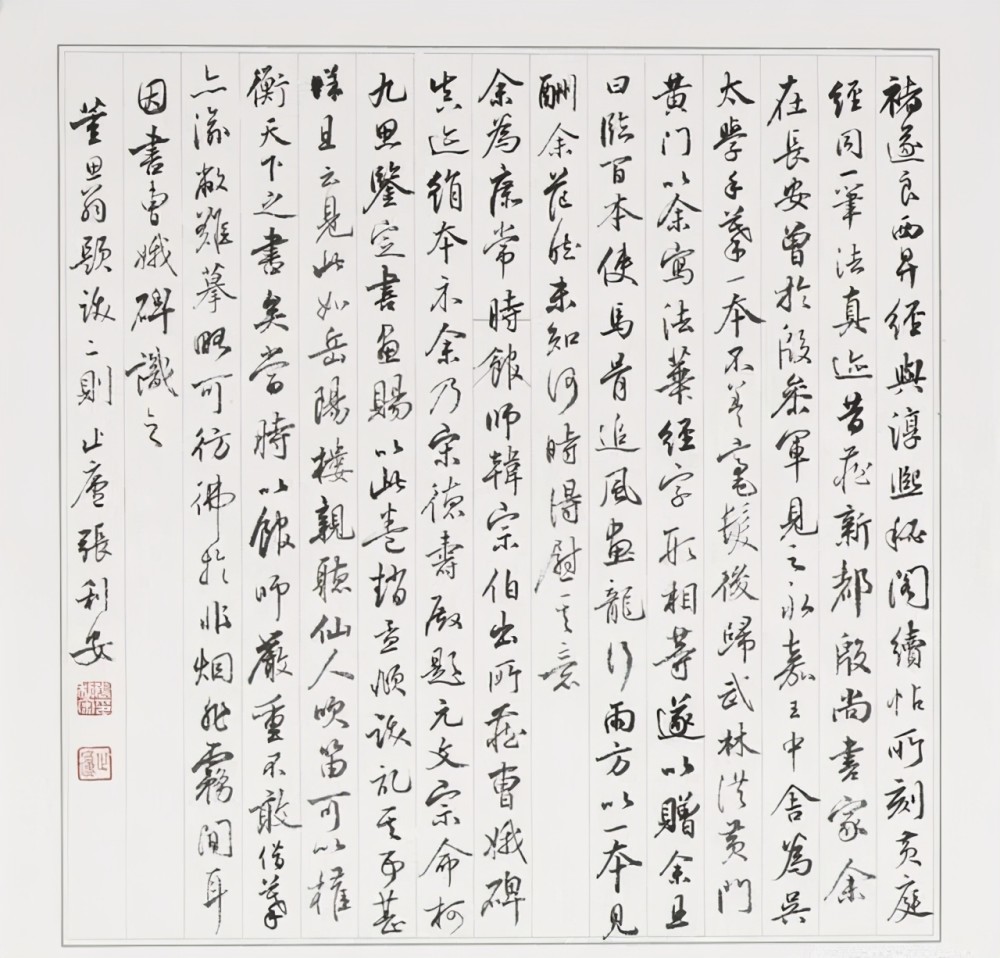 褚遂良西昇經與淳熙秘閣續帖所刻黃庭
經同一筆法真迹昔藏新都殷尚書家余
在長安曾於殷參軍見之永嘉王中舍為吳
太學手摹一本不差毫髮後歸武林洪黃門
黃門以余寫法華經字形相等遂以贈余且
曰臨百本使馬骨追風畫龍行雨方以一本見
酬余茫然未知何時得慰其意
余為庶常時館師韓宗伯出所藏曹娥碑
真迹絹本示余乃宋德壽殿題元文宗命柯
九思鑒定書畫賜以此卷趙孟頫跋記其事甚
詳且云見此如岳陽樓親聽仙人吹笛可以權
衡天下之書矣當時以館師嚴重不敢借摹
亦渝敝難摹略可彷彿於非烟非霧間耳
因書曹娥碑識之
董思翁題跋二則止廬張利安